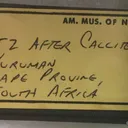 AM. MUS. OF N
TZ AFTER CALCITE
URUMAN
APE PROVINCE,
OUTH AFRICA